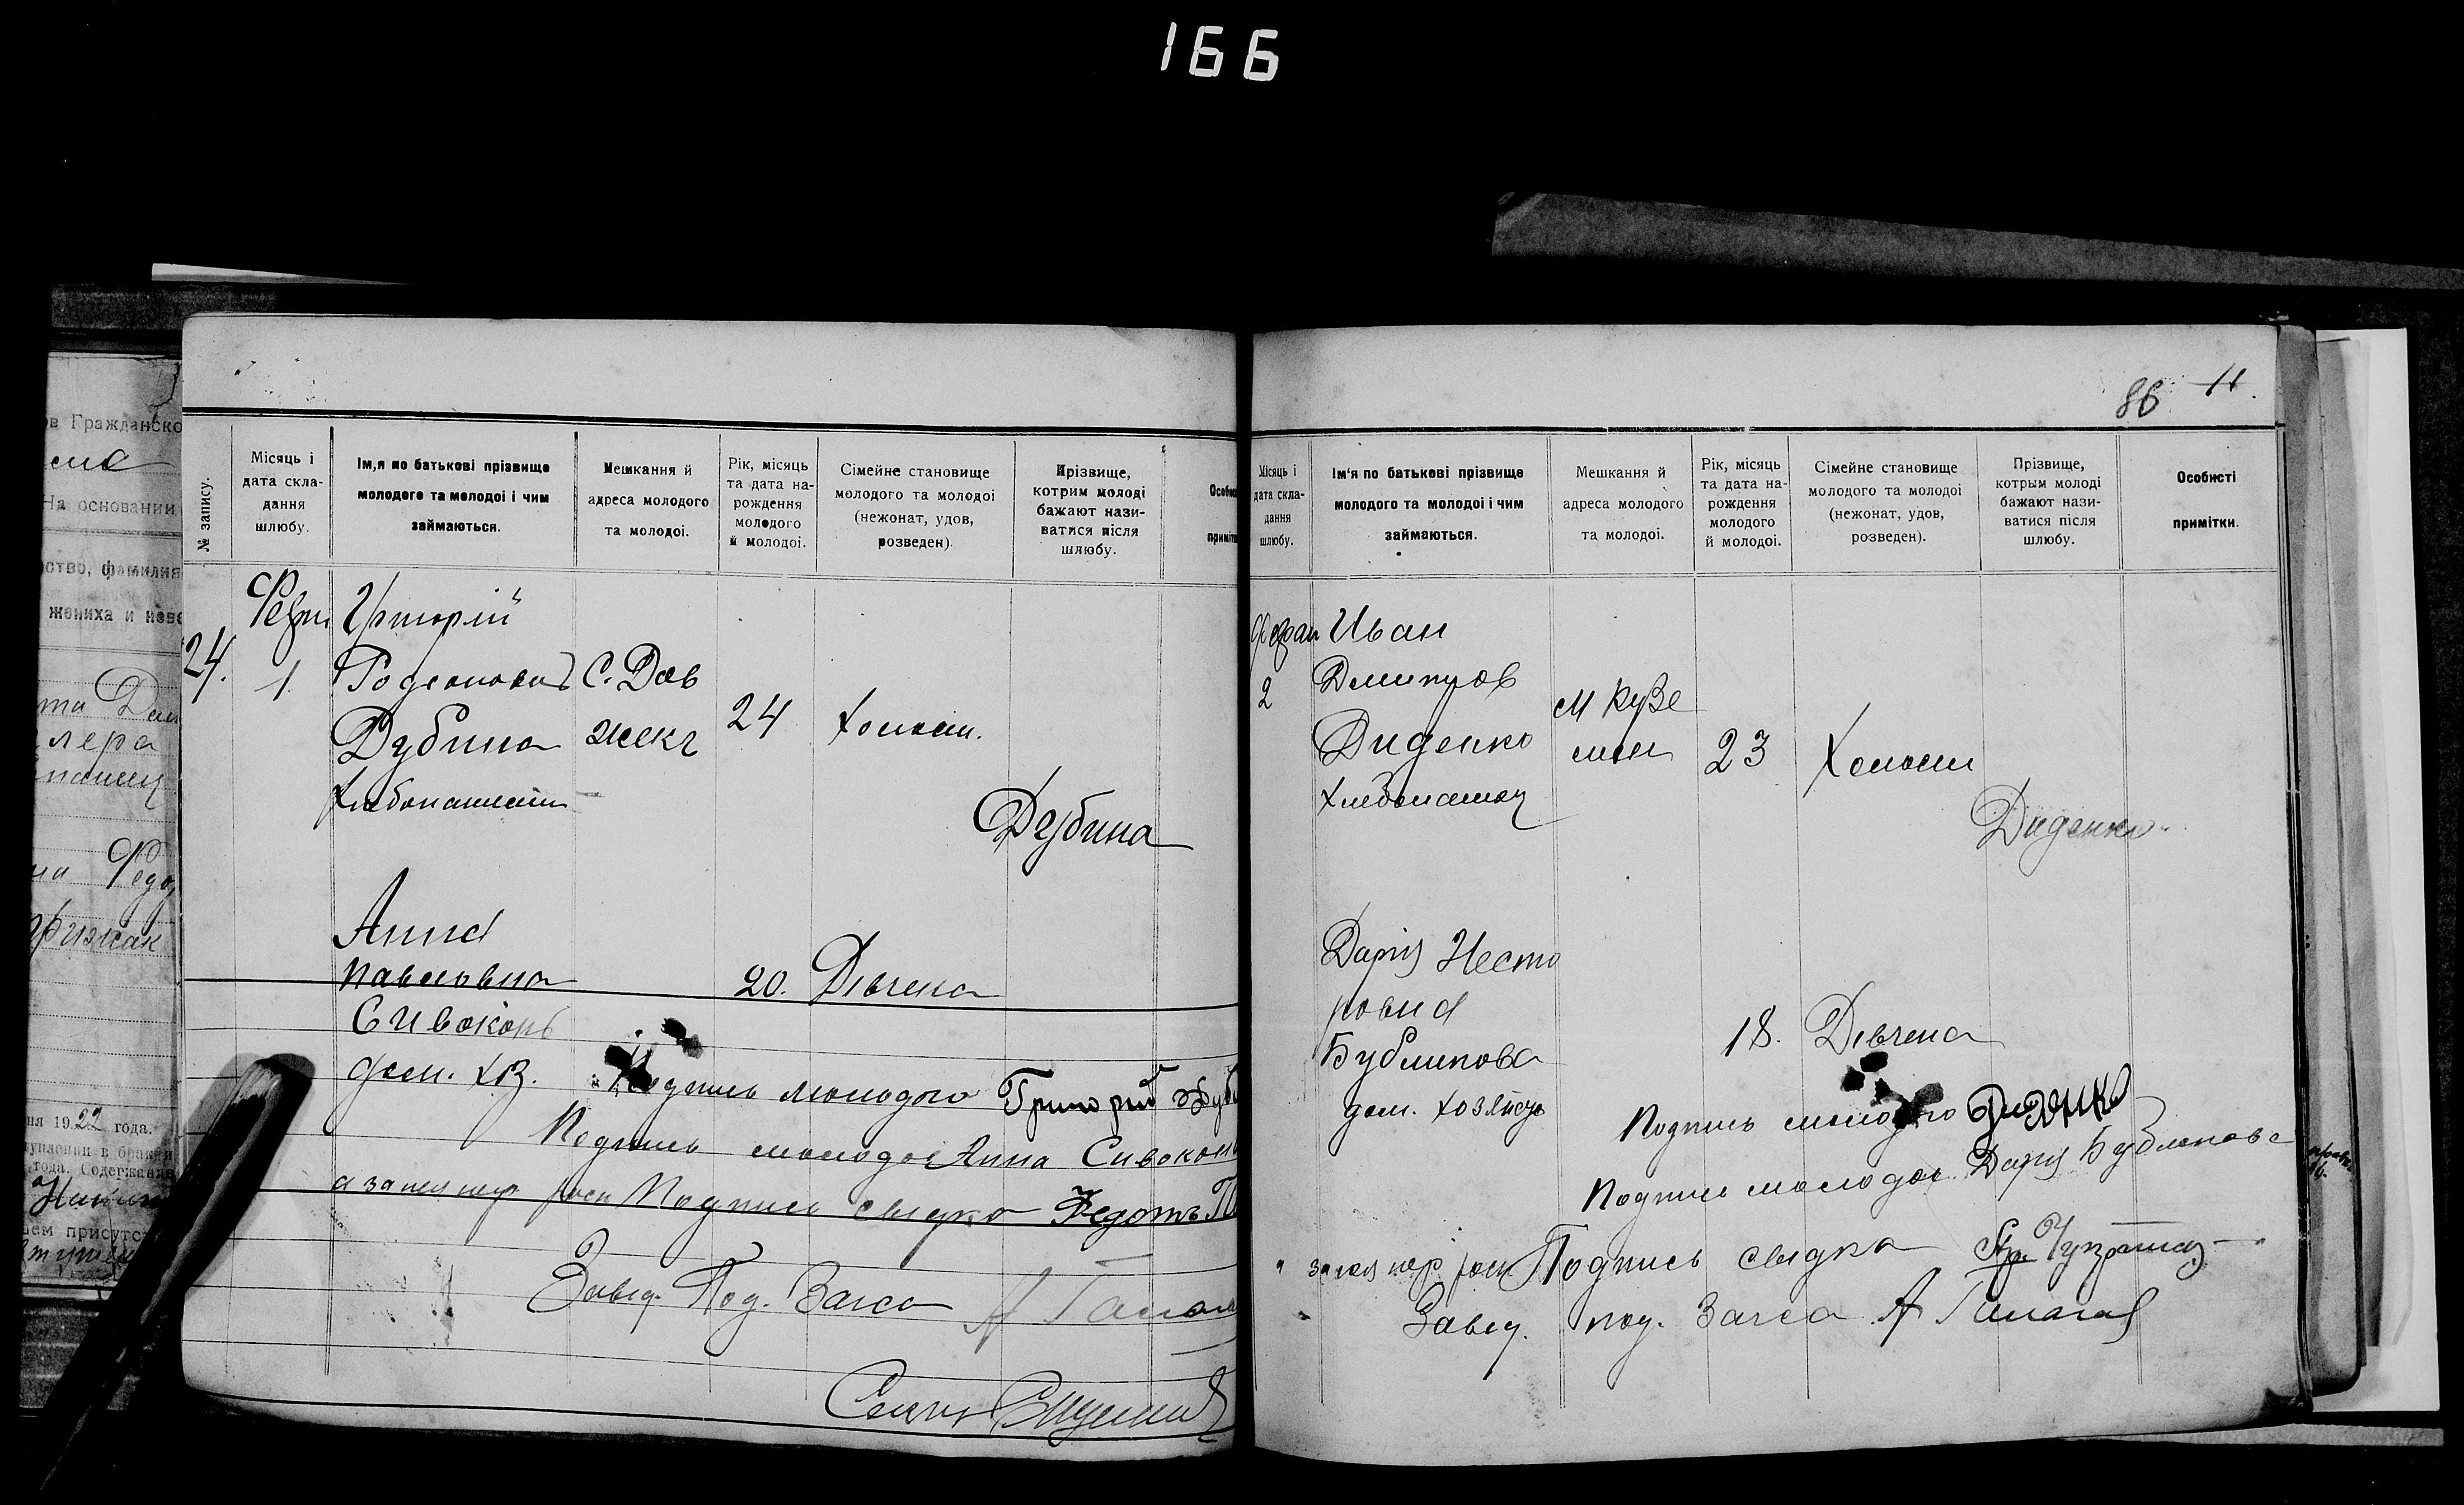 166
в Гражданско
На основании
ство, фамилия
жениха и неве
та Дан
лера
Федо
рижак
ня 1922 года.
туплении в браки
года. Содержание
ем присутс
№ запису.
Місяць і
дата скла-
дання
шлюбу.
Ім,я по батькові прізвище
молодого та молодої і чим
займаються.
Мешкання й
адреса молодого
та молодої.
Рік, місяць
та дата на-
рождення
молодого
й молодої.
Сімейне становище
молодого та молодої
(нежонат, удов,
розведен).
Прізвище,
котрим молоді
бажают нази-
ватися після
шлюбу.
Особис
приміт
24.
1
Григорій
Родеонович
Дубина
С. Дов
жек
24
Холост.
Дубина
Анна
Павловна
Сивоконь
дом. хоз.
20.
Дівчена
Подпись молодого Григорій Дуб
Подпись молодої Анна Сивоконь
Подпись свідка Федотъ
Завед. Под. Загса А Галага
86 11.
Місяць і
дата скла-
дання
шлюбу.
Ім'я по батькові прізвище
молодого та молодої і чим
займаються.
Мешкання й
адреса молодого
та молодої.
Рік, місяць
та дата на-
рождення
молодого
й молодої.
Сімейне становище
молодого та молодої
(нежонат, удов,
розведен).
Прізвище,
котрым молоді
бажают нази-
ватися після
шлюбу.
Особисті
примітки.
2
Иван
Дмитров
Диденко
Хлебопашец
23
Холост
Диденко
Дарія Несто
ровна
Бубликова
дом. хозяйство
18.
Дівчена
Подпись молодого Диденко
Подпись молодої Дарія Бубликова
Подпись свідка
Завед. под. Загса А Галага